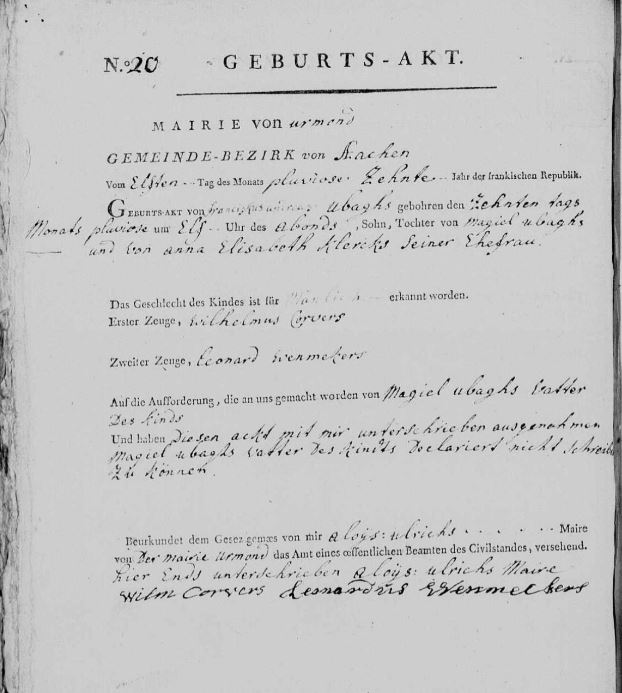 N.º 20 GEBURTS-AKT.
MAIRIE von urmond
GEMEINDE-BEZIRK von Aachen
Vom Elften Tag des Monats pluviose Zehnte Jahr der fränkischen Republik.
GEBURTS-AKT von franciskus ubaghs gebohren den Zehnten tags
Monats pluviose um Elf Uhr des abonds, Sohn, Tochter von Magiel ubaghs
und von anna Elisabeth Klercks Seiner Ehefrau.
Das Geschlecht des Kindes ist für erkannt worden.
Erster Zeuge, Wilhelmus Corvers
Zweiter Zeuge, Leonard Wenmekers
Auf die Aufforderung, die an uns gemacht worden von Magiel ubaghs Vatter
Des Kinds
Und haben Diesen ackt mit mir unterschrieben ausgenohmen
Magiel ubaghs Vatter Des Kindts Declariert nicht schreib
Zu Können.
Beurkundet dem Gesez gemæs von mir aloÿs: ulrichs . . . . . . Maire
von Der mairie urmond das Amt eines œffentlichen Beamten des Civilstandes, versehend.
hier Ends unterschrieben aloÿs: ulrichs Maire
Wilm Corvers Leonardus Wenmekers